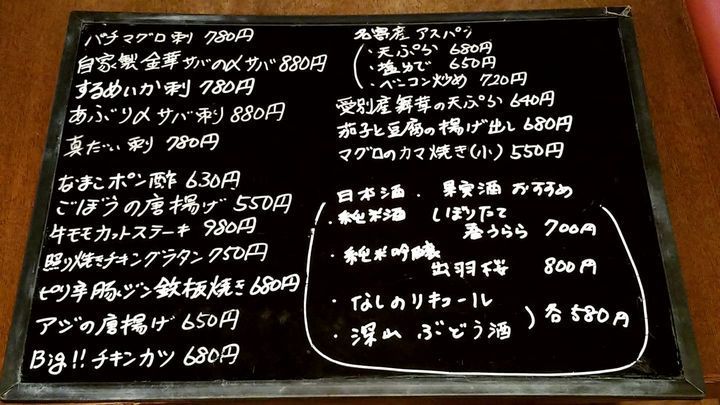 バチマグロ刺 780円
自家製金華サバの〆サバ 880円
するめいか刺 780円
あぶり〆サバ刺 880円
真だい刺 780円
なまこポン酢 630円
ごぼうの唐揚げ 550円
牛モモカットステーキ 980円
照り焼きチキングラタン 750円
ピリ辛豚ジン鉄板焼き 680円
アジの唐揚げ 650円
Big!! チキンカツ 680円
名寄産アスパラ
・天ぷら 680円
・塩ゆで 650円
・ベーコン炒め 720円
愛別産舞茸の天ぷら 640円
茄子と豆腐の揚げ出し 680円
マグロのカマ焼き(小) 550円
日本酒・果実酒おすすめ
・純米酒 しぼりたて
春うらら 700円
・純米吟醸
出羽桜 800円
・なしのリキュール
・深山ぶどう酒 )各580円